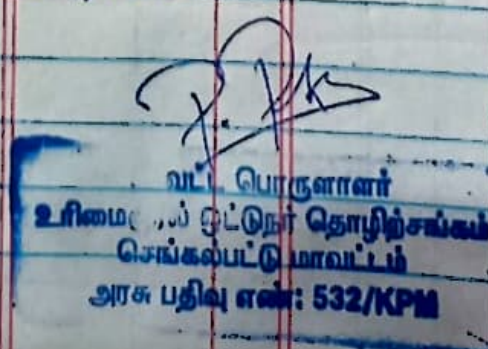 வட்ட பொருளாளர்
ஓட்டுநர் தொழிற்சங்கம்
செங்கல்பட்டு மாவட்டம்
அரசு பதிவு எண்: 532/KPM